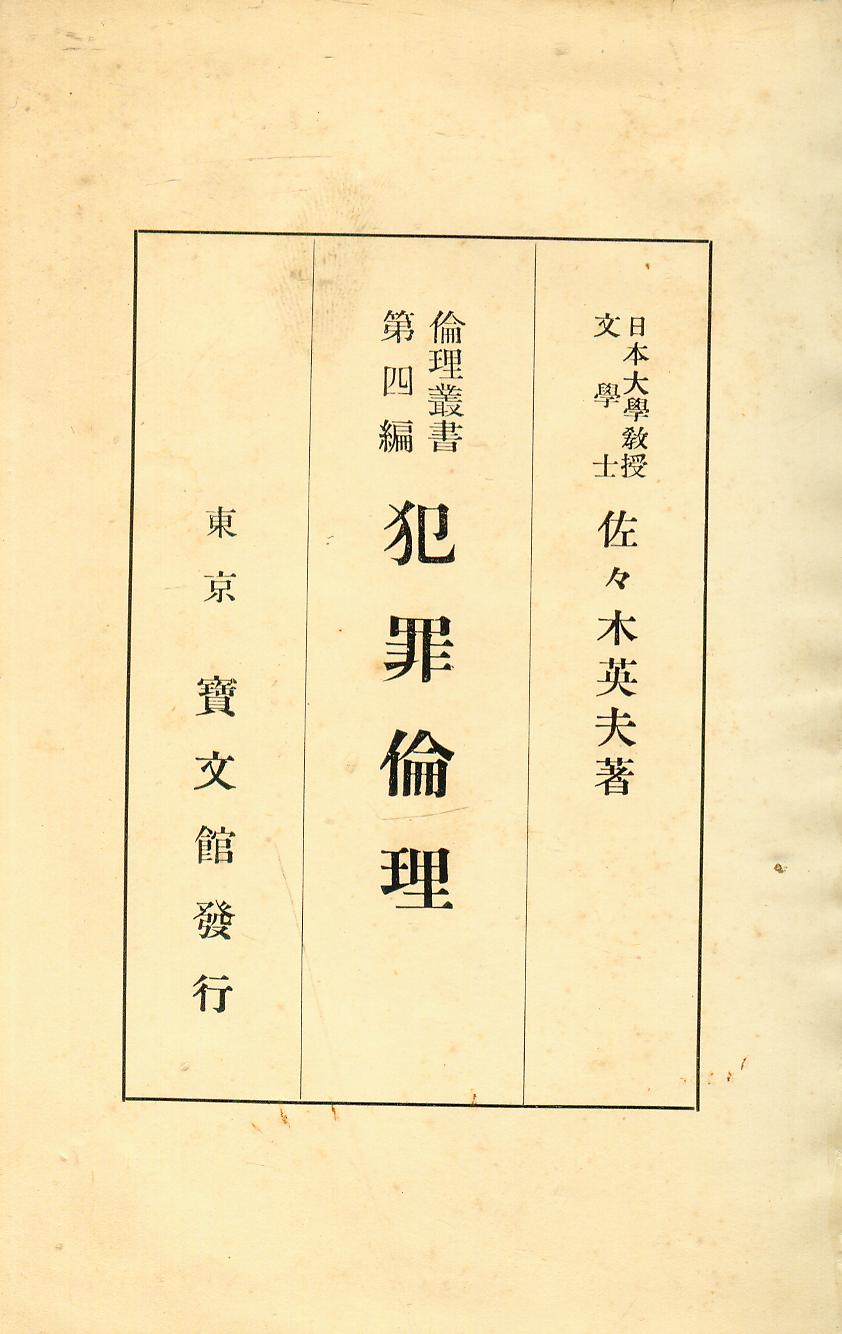 日本大學敎授
文學士
佐々木英夫著
倫理叢書
第四編
犯罪倫理
東京 寶文館發行